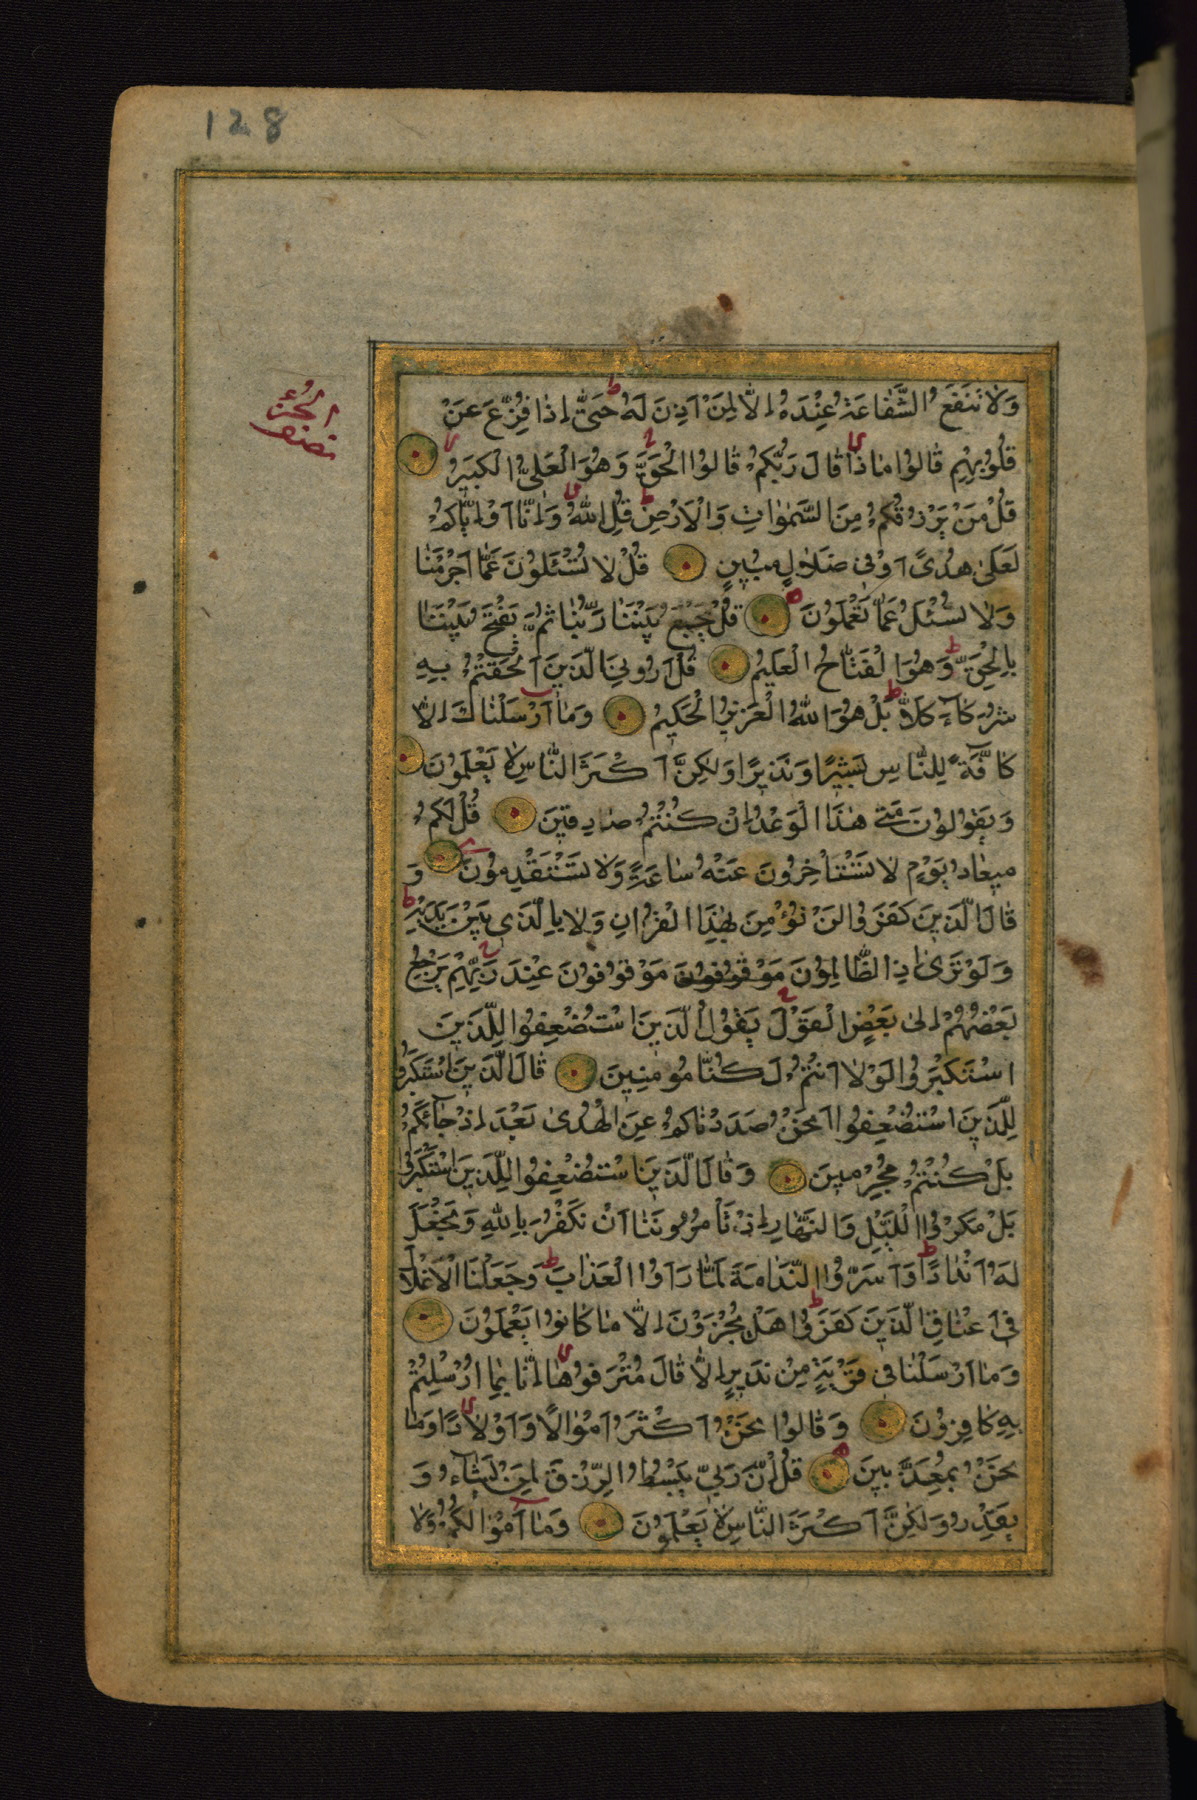 128
نصف الجزء
وَلَا تَنْفَعُ الشَّفَاعَةُ عِنْدَهُ إِلَّا لِمَنْ أَذِنَ لَهُ حَتَّى إِذَا فُزِّعَ عَنْ
قُلُوبِهِمْ قَالُوا مَاذَا قَالَ رَبُّكُمْ قَالُوا الْحَقَّ وَهُوَ الْعَلِيُّ الْكَبِيرُ
قُلْ مَنْ يَرْزُقُكُمْ مِنَ السَّمٰوَاتِ وَالْأَرْضِ قُلِ اللهُ وَإِنَّا أَوْ إِيَّاكُمْ
لَعَلَى هُدًى أَوْ فِي ضَلَالٍ مُبِينٍ قُلْ لَا تُسْئَلُونَ عَمَّا أَجْرَمْنَا
وَلَا نُسْئَلُ عَمَّا تَعْمَلُونَ قُلْ يَجْمَعُ بَيْنَنَا رَبُّنَا ثُمَّ يَفْتَحُ بَيْنَنَا
بِالْحَقِّ وَهُوَ الْفَتَّاحُ الْعَلِيمُ قُلْ أَرُونِيَ الَّذِينَ أَلْحَقْتُمْ بِهِ
شُرَكَاءَ كَلَّا بَلْ هُوَ اللهُ الْعَزِيزُ الْحَكِيمُ وَمَا أَرْسَلْنَاكَ إِلَّا
كَافَّةً لِلنَّاسِ بَشِيرًا وَنَذِيرًا وَلَكِنَّ أَكْثَرَ النَّاسِ لَا يَعْلَمُونَ
وَيَقُولُونَ مَتَى هٰذَا الْوَعْدُ إِنْ كُنْتُمْ صَادِقِينَ قُلْ لَكُمْ
مِيعَادُ يَوْمٍ لَا تَسْتَأْخِرُونَ عَنْهُ سَاعَةً وَلَا تَسْتَقْدِمُونَ وَ
قَالَ الَّذِينَ كَفَرُوا لَنْ نُؤْمِنَ بِهٰذَا الْقُرْآنِ وَلَا بِالَّذِي بَيْنَ يَدَيْهِ
وَلَوْ تَرَى إِذِ الظَّالِمُونَ مَوْقُوفُونَ مَوْقُوفُونَ عِنْدَ رَبِّهِمْ يَرْجِعُ
بَعْضُهُمْ إِلَى بَعْضٍ الْقَوْلَ يَقُولُ الَّذِينَ اسْتُضْعِفُوا لِلَّذِينَ
اسْتَكْبَرُوا لَوْلَا أَنْتُمْ لَكُنَّا مُؤْمِنِينَ قَالَ الَّذِينَ اسْتَكْبَرُوا
لِلَّذِينَ اسْتُضْعِفُوا أَنَحْنُ صَدَدْنَاكُمْ عَنِ الْهُدَى بَعْدَ إِذْ جَاءَكُمْ
بَلْ كُنْتُمْ مُجْرِمِينَ وَقَالَ الَّذِينَ اسْتُضْعِفُوا لِلَّذِينَ اسْتَكْبَرُوا
بَلْ مَكْرُ اللَّيْلِ وَالنَّهَارِ إِذْ تَأْمُرُونَنَا أَنْ نَكْفُرَ بِاللهِ وَنَجْعَلَ
لَهُ أَنْدَادًا وَأَسَرُّوا النَّدَامَةَ لَمَّا رَأَوُا الْعَذَابَ وَجَعَلْنَا الْأَغْلَالَ
فِي أَعْنَاقِ الَّذِينَ كَفَرُوا هَلْ يُجْزَوْنَ إِلَّا مَا كَانُوا يَعْمَلُونَ
وَمَا أَرْسَلْنَا فِي قَرْيَةٍ مِنْ نَذِيرٍ إِلَّا قَالَ مُتْرَفُوهَا إِنَّا بِمَا أُرْسِلْتُمْ
بِهِ كَافِرُونَ وَقَالُوا نَحْنُ أَكْثَرُ أَمْوَالًا وَأَوْلَادًا وَمَا
نَحْنُ بِمُعَذَّبِينَ قُلْ إِنَّ رَبِّي يَبْسُطُ الرِّزْقَ لِمَنْ يَشَاءُ وَ
يَقْدِرُ وَلَكِنَّ أَكْثَرَ النَّاسِ لَا يَعْلَمُونَ وَمَا أَمْوَالُكُمْ وَلَا